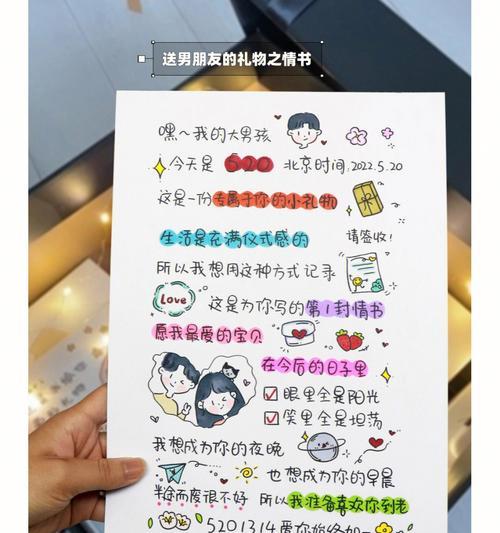 送男朋友的礼物之情书
嘿~我的大男孩
今天是 520 北京时间:2022.5.20
这是一份专属于你的小礼物
生活是充满仪式感的 请签收!
所以我想用这种方式记录
Love 这是为你写的第1封情书
愿我最爱的宝贝
在今后的日子里
☑ 眼里全是阳光
☑ 笑里全是坦荡
我想成为你的夜晚
也想成为你的早晨
半途而废很不好 所以我准备喜欢你到老
5201314爱你始终如一